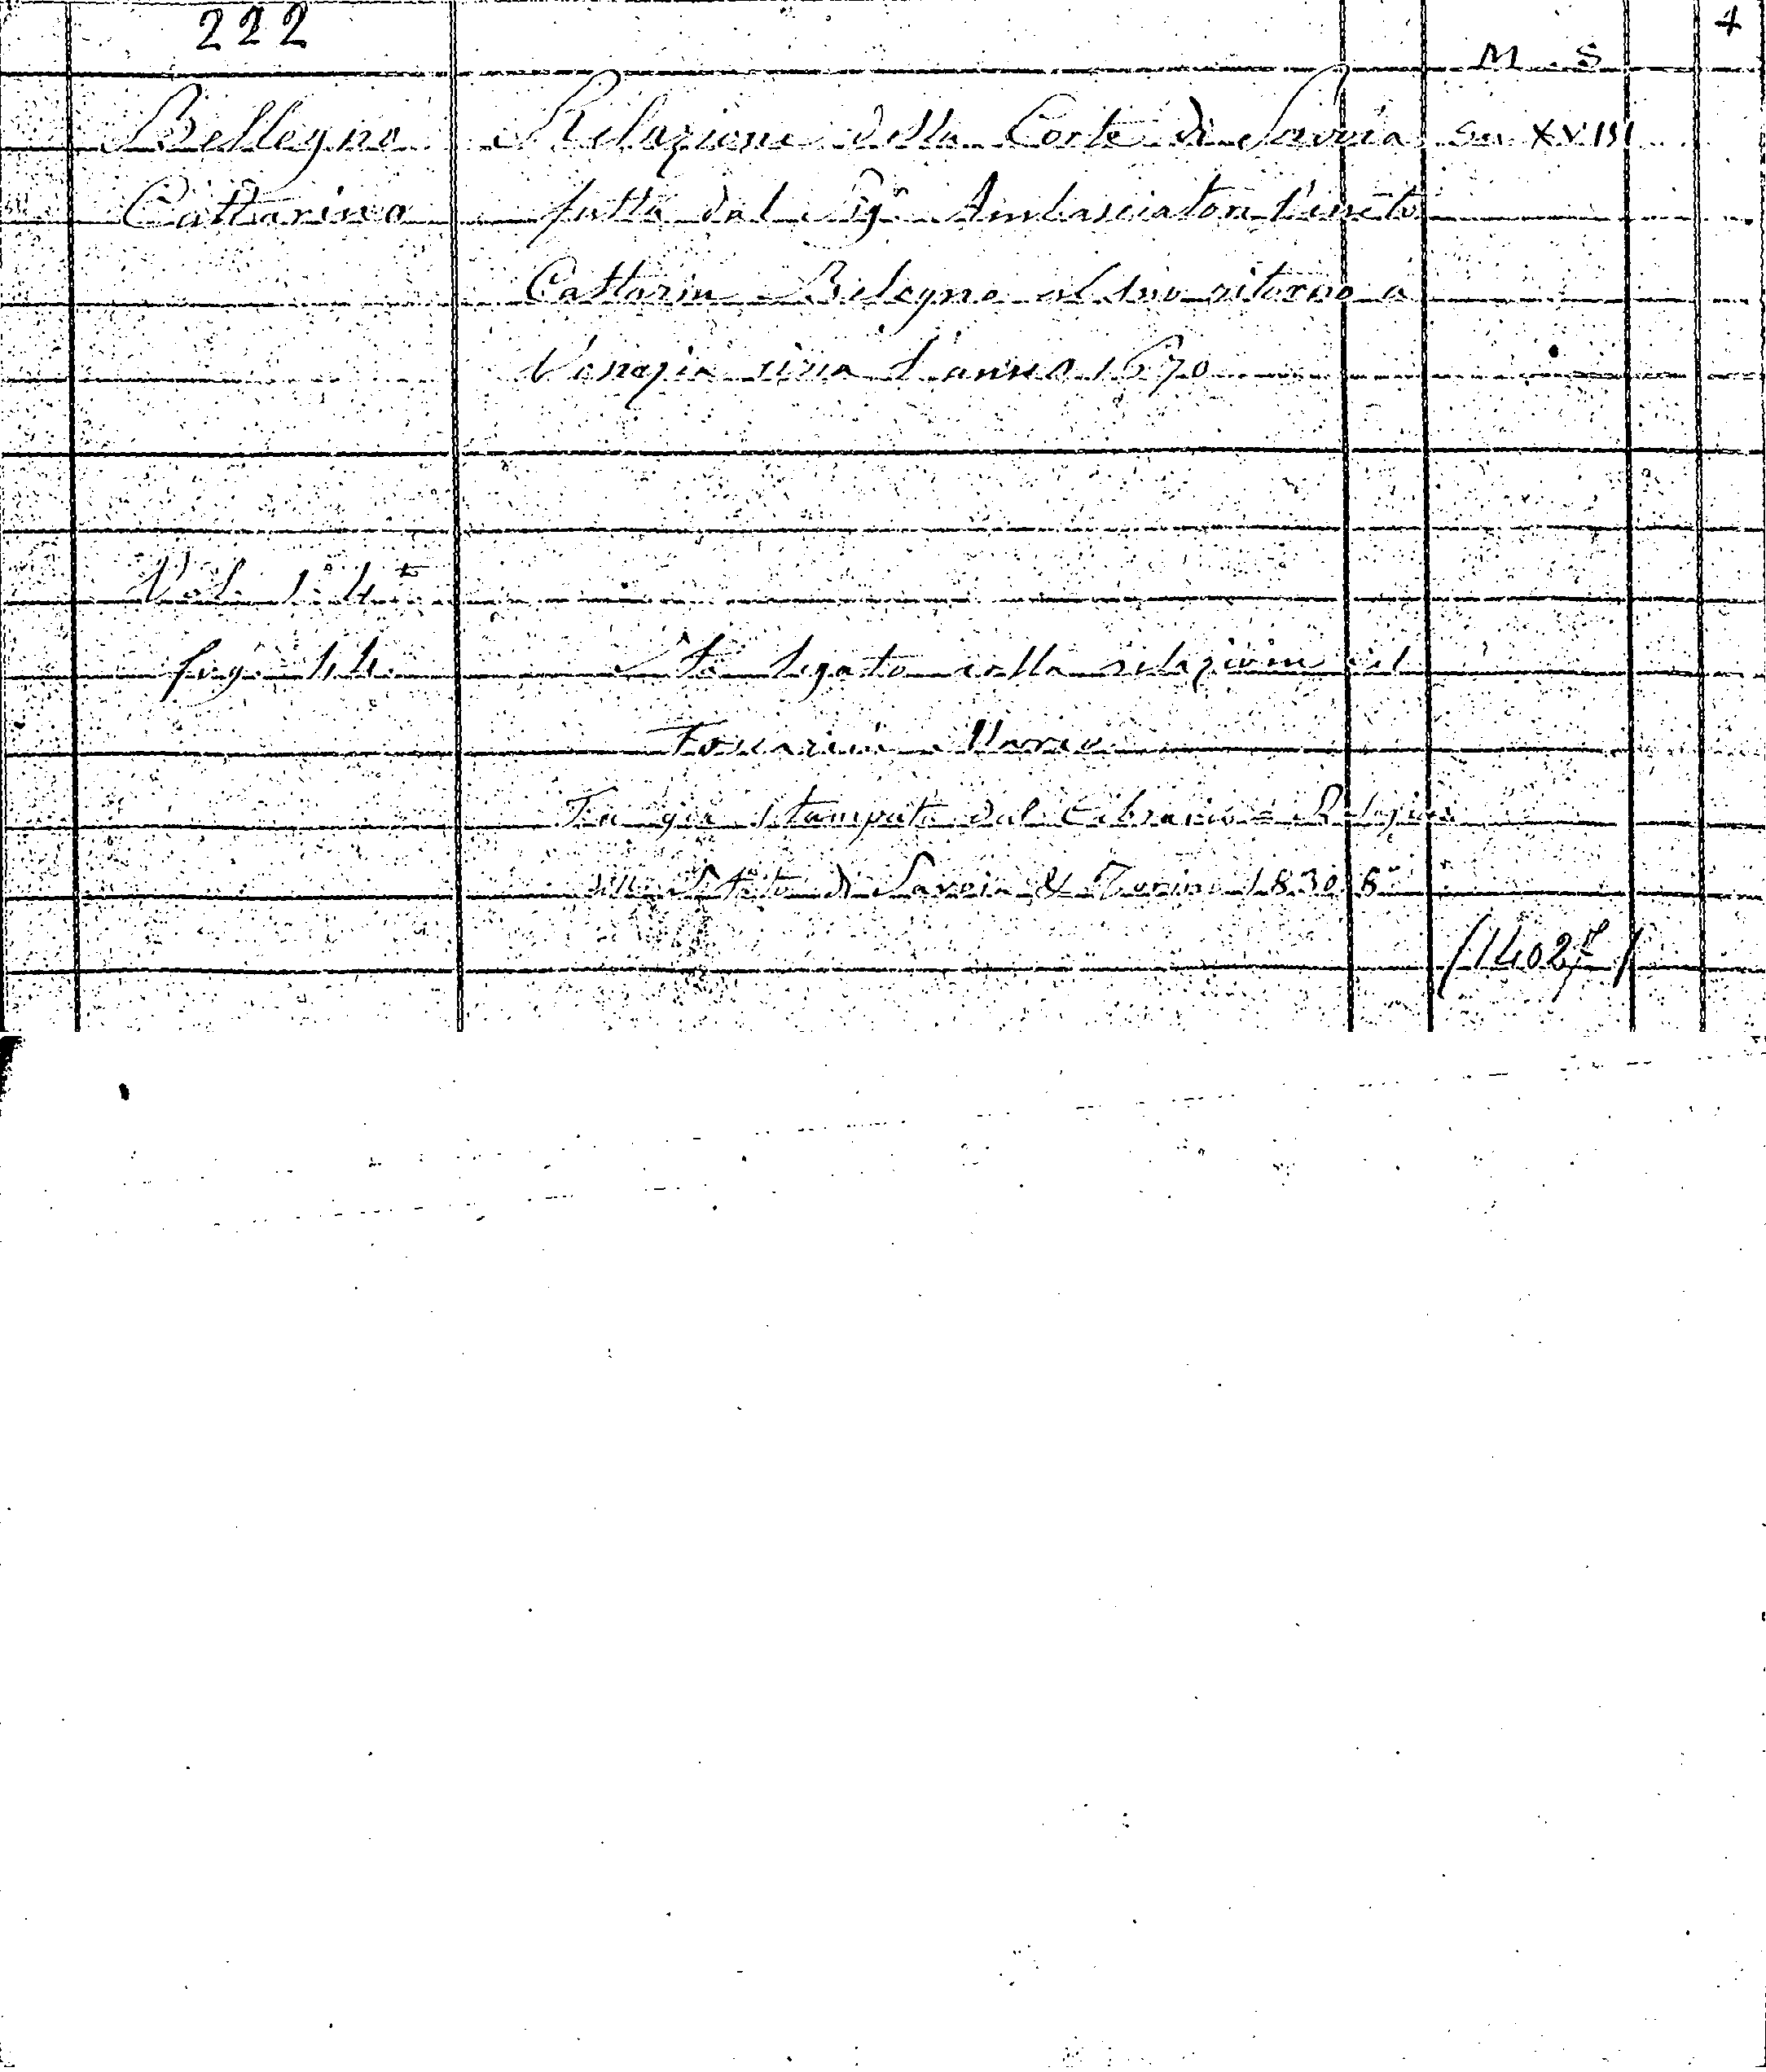 222
4
M. S
Bellegno Relazione della Corte di Savoia Sec. XVIII
Cattarino fatta dal Sigr Ambasciatore Veneto
Cattarin Belegno al suo ritorno a
Venezia circa l'anno 1670
Vedi l'altro
fog. Sta legato colla relazione del
Foscarini Marco
Fu già stampata dal Cibrario: Relazioni
dello Stato di Savoia & Torino 1830 8°
(14027)